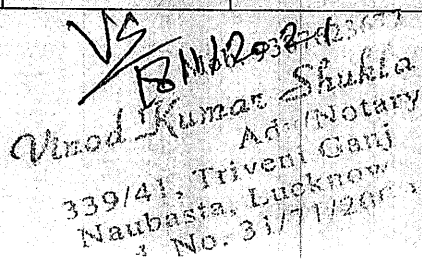 VS
Vinod Kumar Shukla
Adv/Notary
339/41, Triveni Ganj
Naubasta, Lucknow
No. 31/71/200